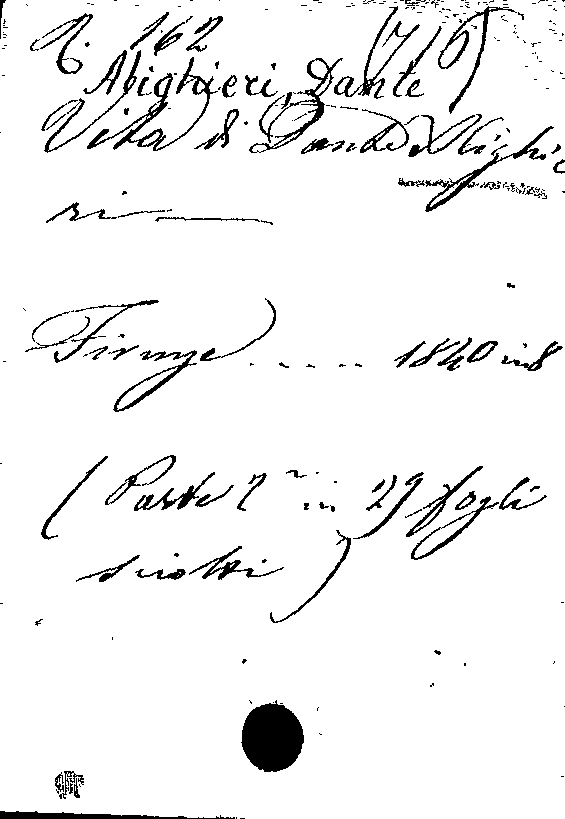 N. 162 (716)
Alighieri, Dante
Vita di Dante Alighie
ri
Firenze ..... 1840 in 8
(Parte 2ª in 29 fogli
sciolti)